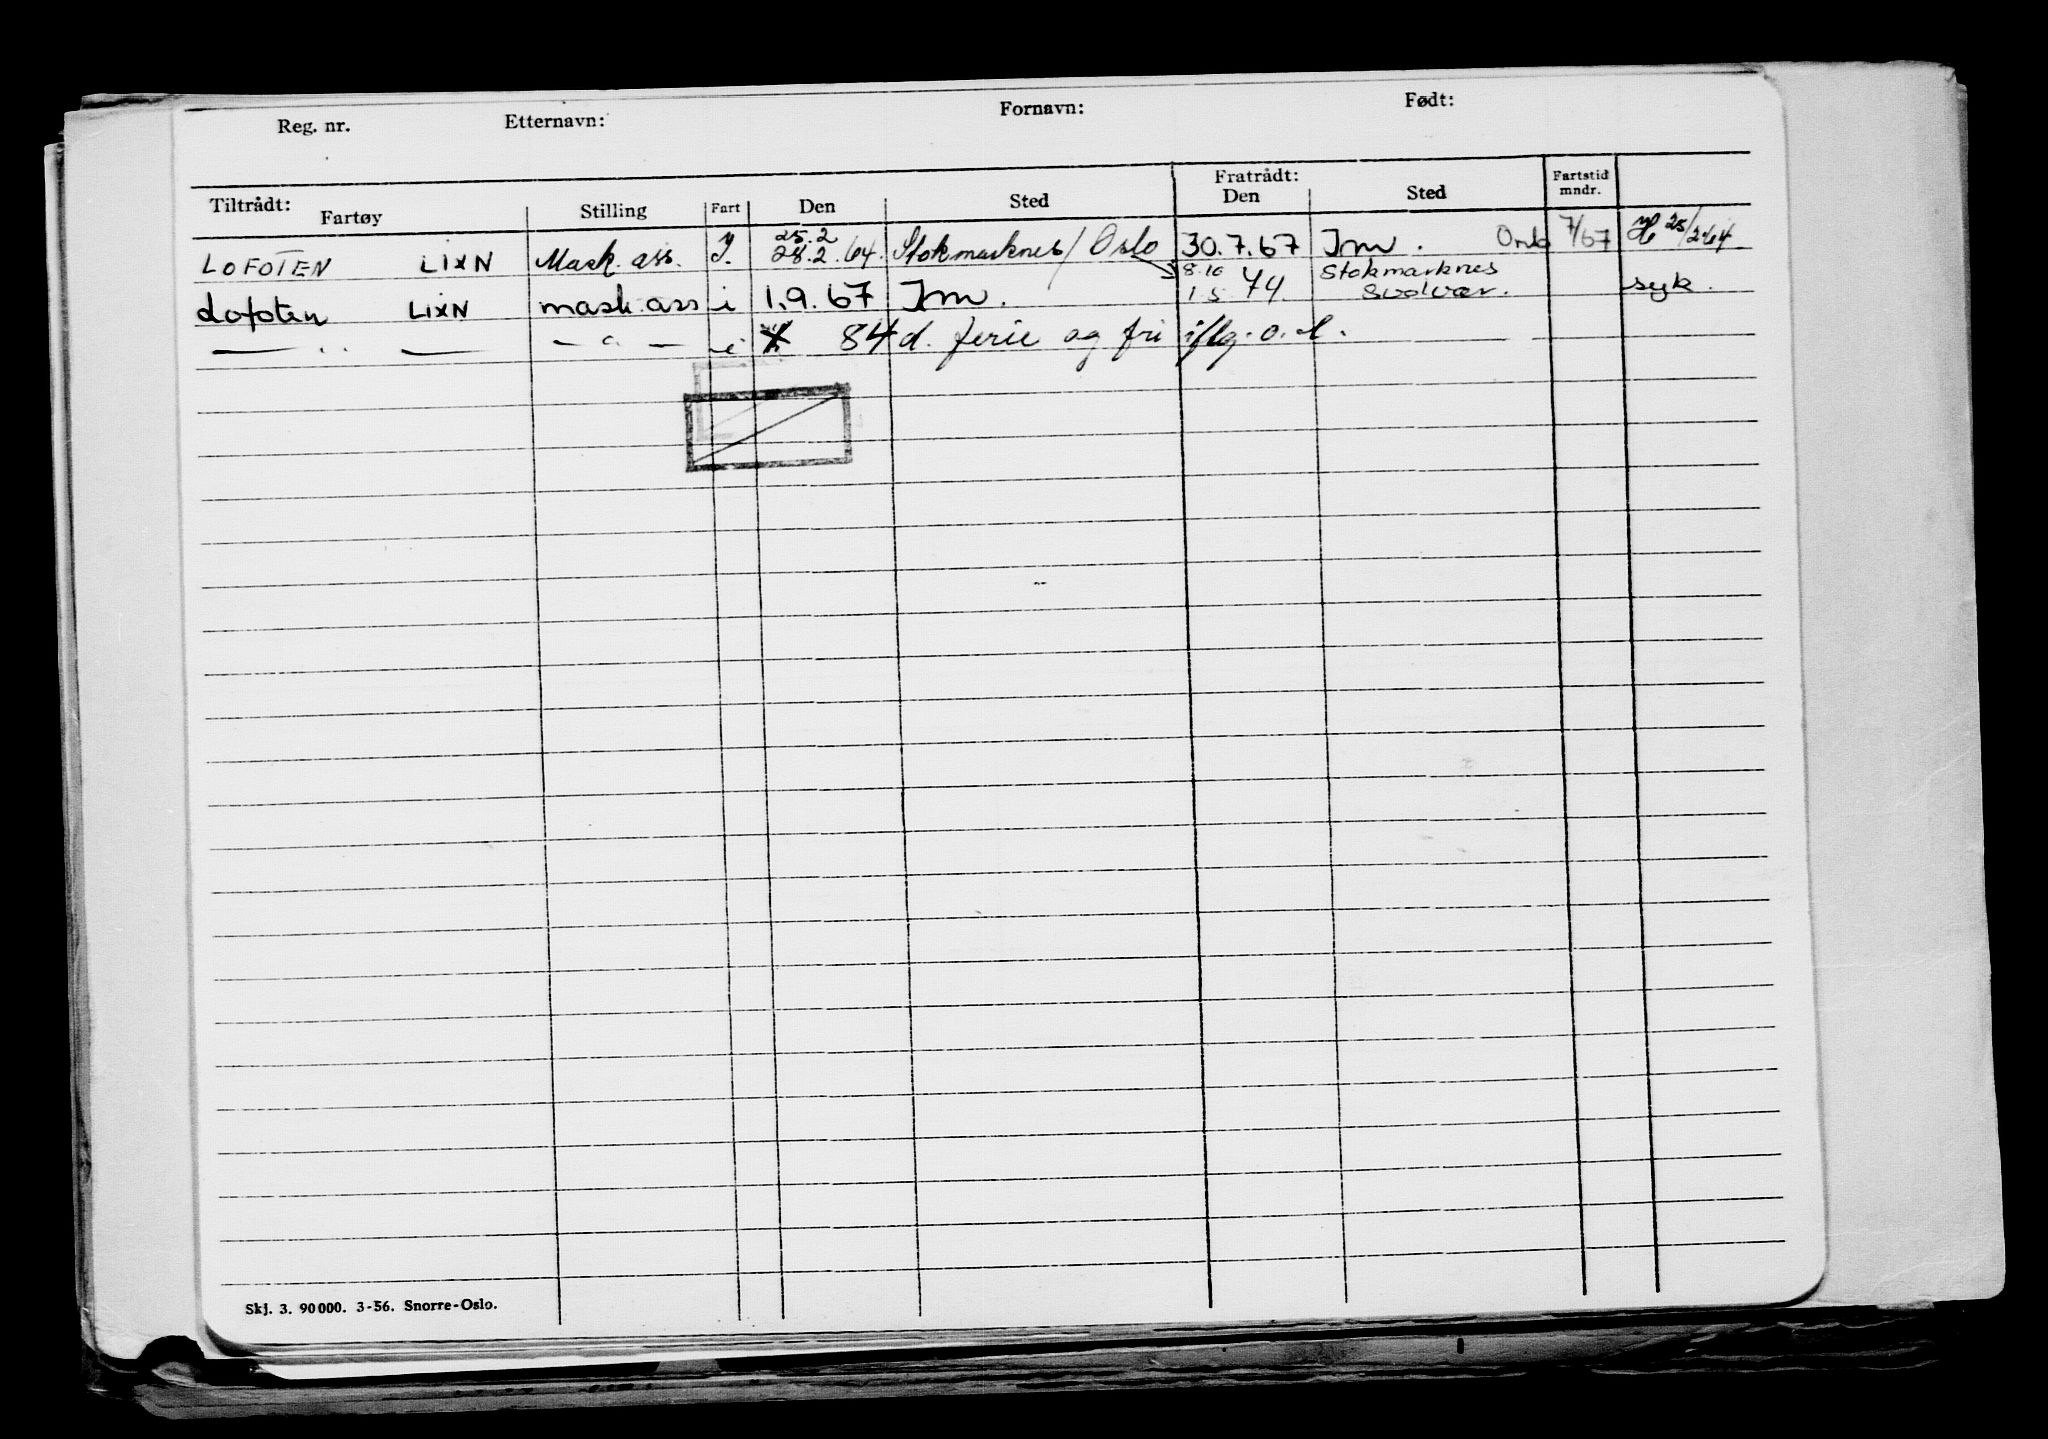 Reg. nr. Etternavn: Fornavn: Født:
Tiltrådt: Fratrådt:
Fartøy Stilling Fart Den Sted Den Sted Fartstid mndr.
LOFOTEN LIXN Mask. ass. I. 25.2 28.2.64. Stokmarknes/Oslo 30.7.67 Im. 7/67 25/2-64
Lofoten LIXN mask.ass i 1.9.67 Im. 8.10 1.5.74 Stokmarknes Svolvær. syk.
— " — — " — i 84 d. ferie og fri iflg. o.l.
Skj. 3. 90000. 3-56. Snorre-Oslo.